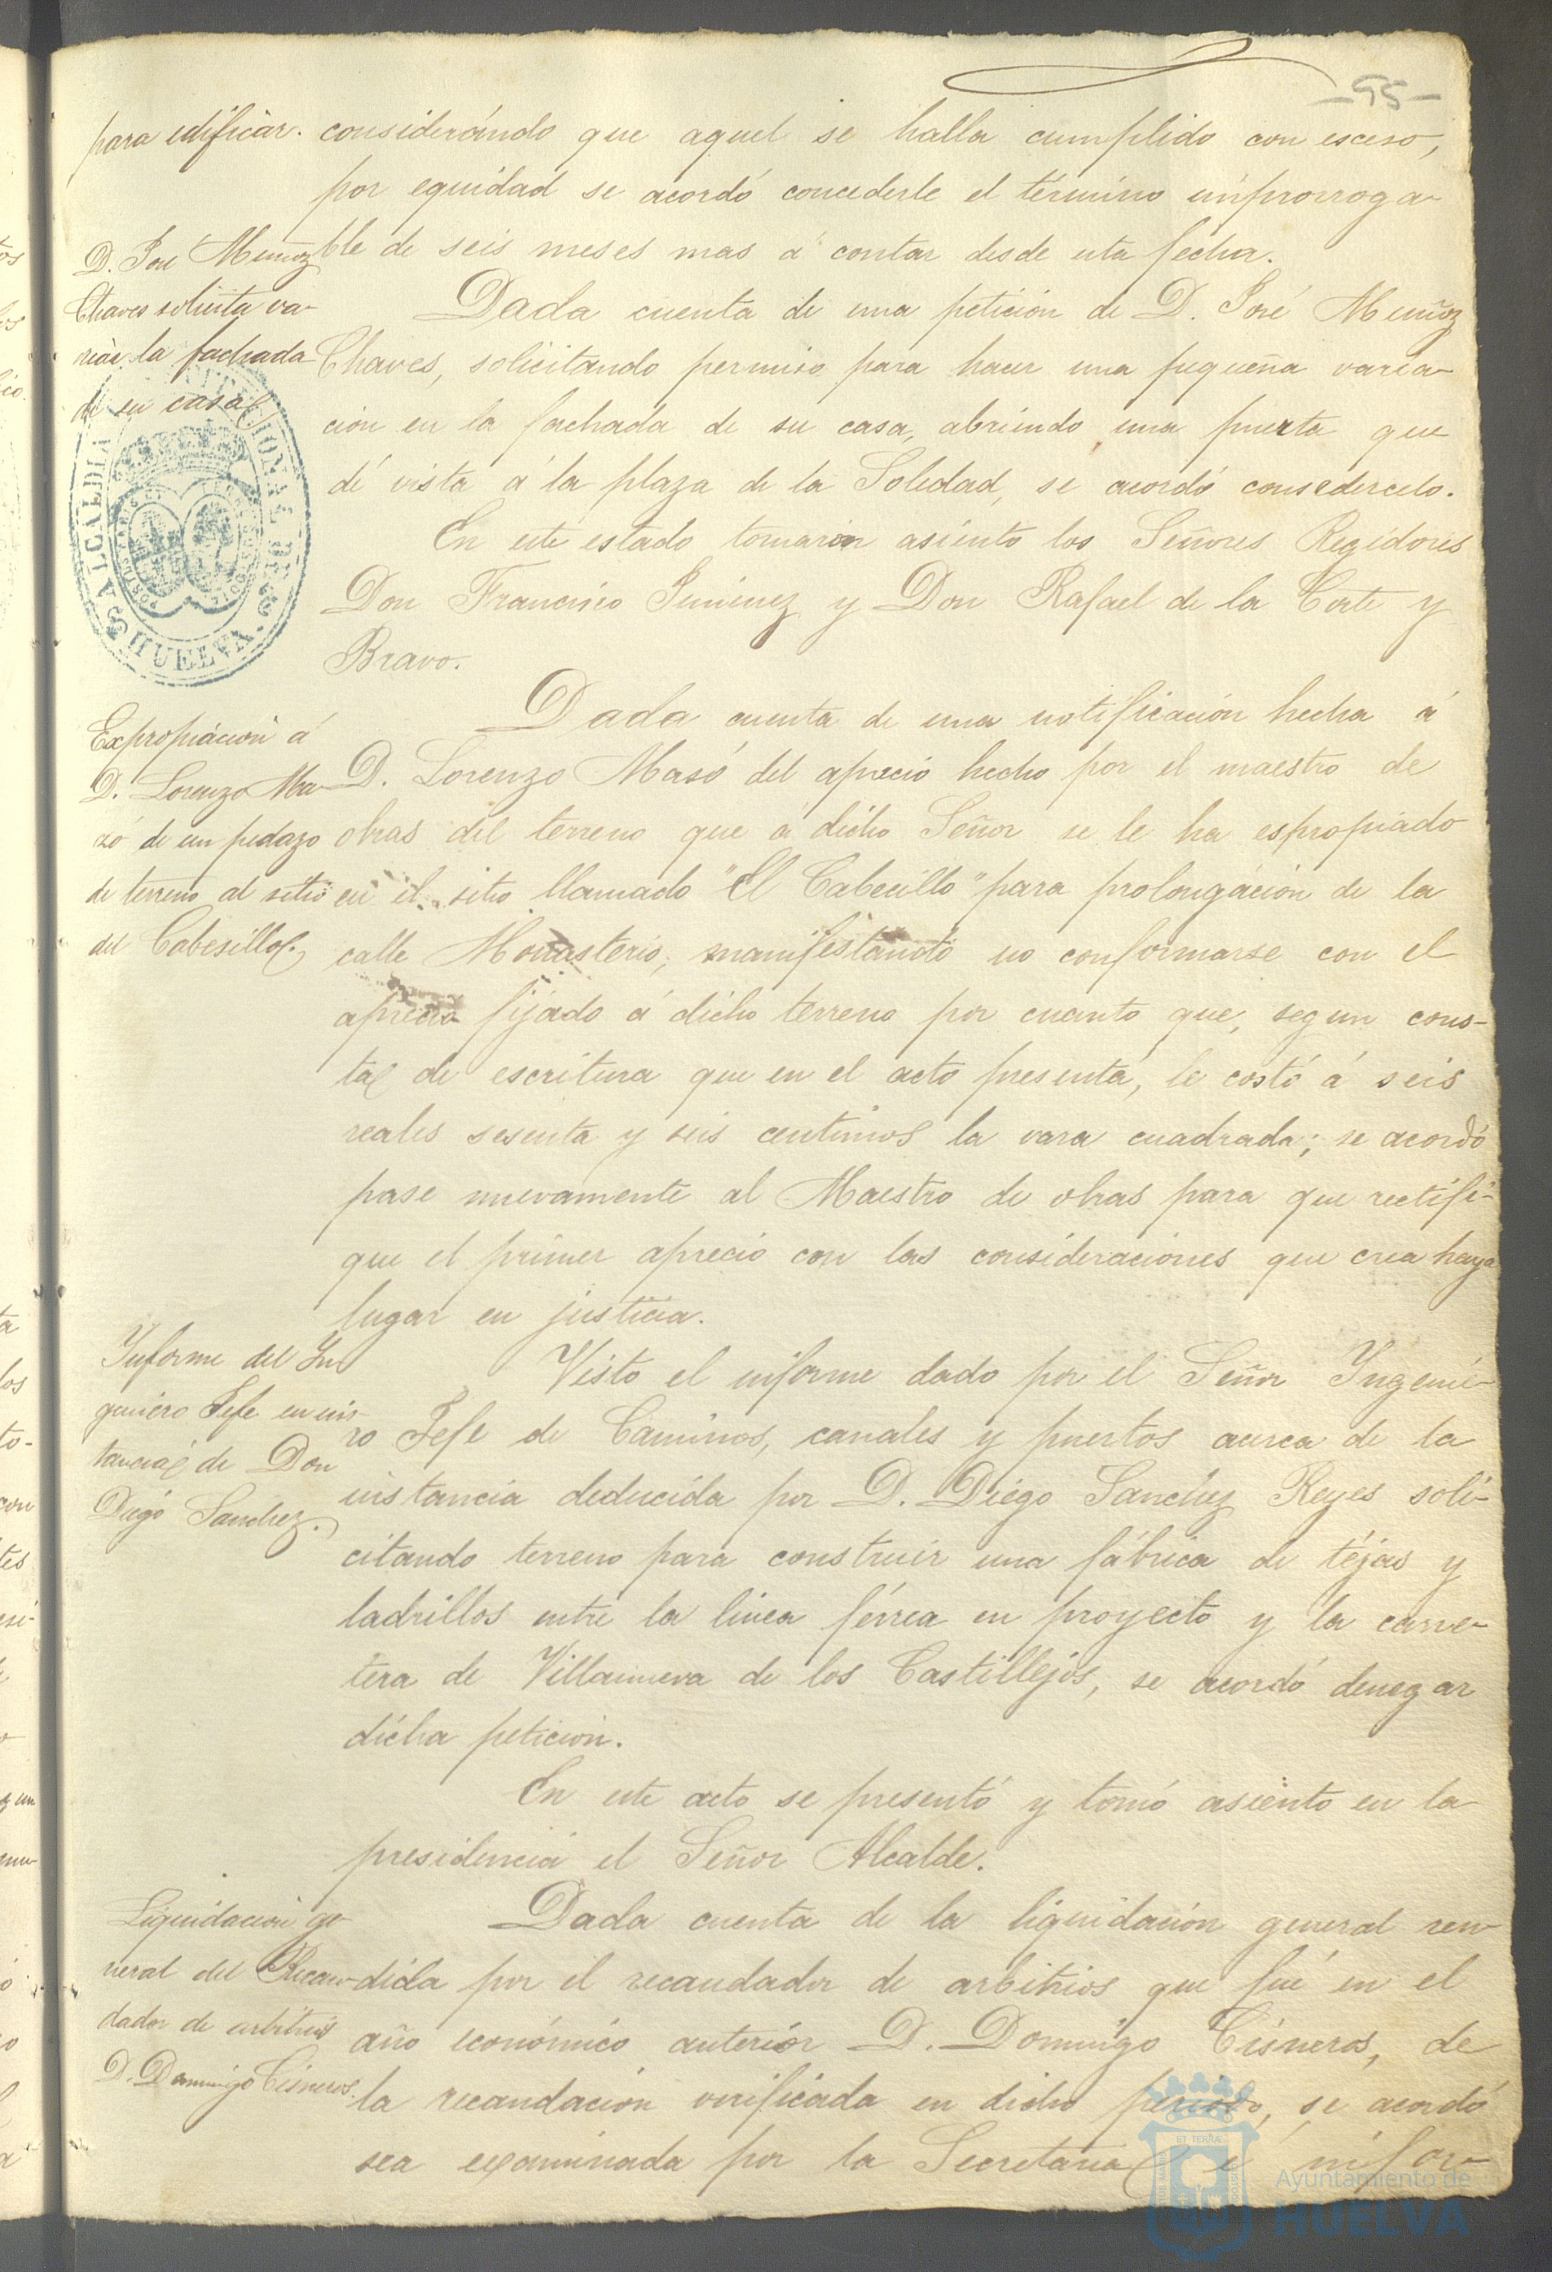 -95-
para edificar.
considerándo que aquel se halla cumplido con esceso,
por equidad se acordó concederle el término improrroga-
ble de seis meses mas á contar desde esta fecha.
D. José Muñoz
Chaves solicita va-
riar la fachada
de su casa
Dada cuenta de una petición de D. José Muñoz
Chaves, solicitando permiso para hacer una pequeña varia-
ción en la fachada de su casa, abriendo una puerta que
dé vista á la plaza de la Soledad, se acordó consedercelo.
ALCALDIA CONSTITUCIONAL DE
HUELVA
En este estado tomaron asiento los Señores Regidores
Don Francisco Jimenez y Don Rafael de la Corte y
Bravo.
Expropiación á
D. Lorenzo Ma-
zó de un pedazo
de terreno al sitio
del Cabesillo.
Dada cuenta de una notificación hecha á
D. Lorenzo Masó del aprecio hecho por el maestro de
obras del terreno que á dicho Señor se le ha espropiado
en el sitio llamado "El Cabecillo" para prolongación de la
calle Monasterio, manifestando no conformarse con el
aprecio fijado á dicho terreno por cuanto que, segun cons-
ta de escritura que en el acto presenta, le costó á seis
reales sesenta y seis centimos la vara cuadrada; se acordó
pase nuevamente al Maestro de obras para que rectifi-
que el primer aprecio con las consideraciones que crea haya
lugar en justicia.
Informe del In
geniero Jefe en ins-
tancia de Don
Diego Sanchez.
Visto el informe dado por el Señor Yngenie-
ro Jefe de Caminos, canales y puertos acerca de la
instancia deducida por D. Diego Sanchez Reyes soli-
citando terreno para construir una fábrica de téjas y
ladrillos entre la linea férrea en proyecto y la carre-
tera de Villanueva de los Castillejos, se acordó denegar
dicha petición.
En este acto se presentó y tomó asiento en la
presidencia el Señor Alcalde.
Liquidación ge-
neral del Recau-
dador de arbitrios
D. Domingo Cisneros.
Dada cuenta de la liquidación general ren-
dida por el recaudador de arbitrios que fué en el
año económico anterior D. Domingo Cisneros, de
la recaudación verificada en dicho periodo, se acordó
sea examinada por la Secretaria é infor-
Ayuntamiento de
HUELVA